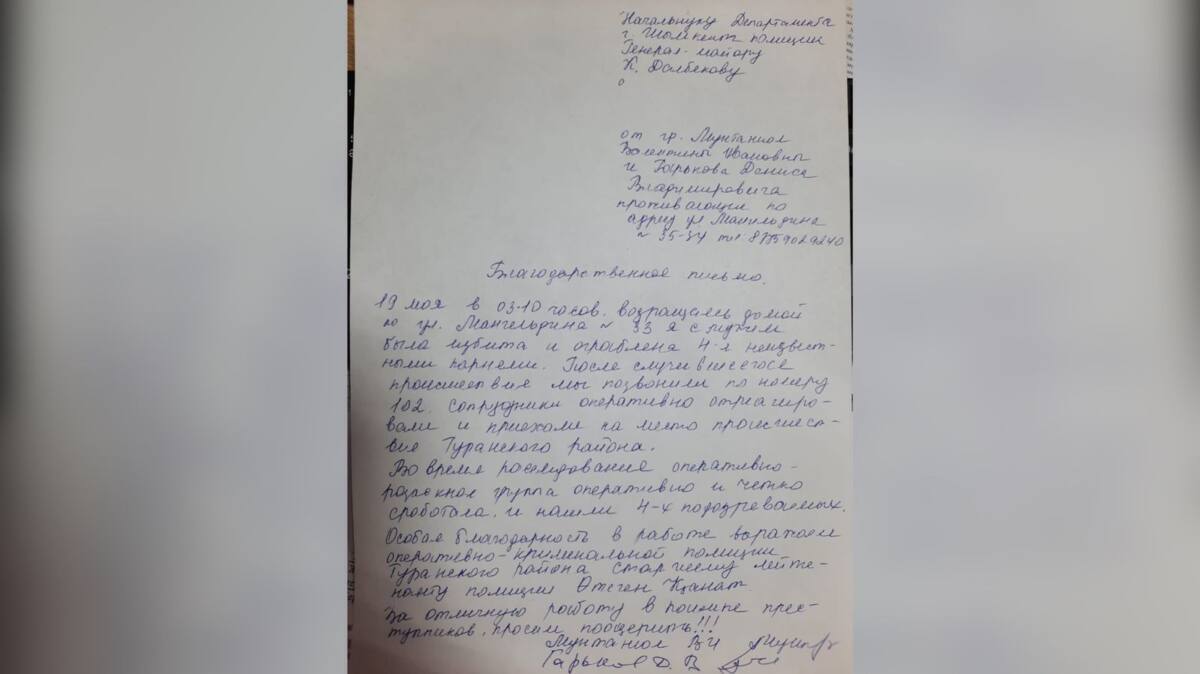 Начальнику Департамента
г. Шымкент полиции
Генерал-майору
К. Далбекову
от гр. Мунтаниол
Валентины Ивановны
и Гарькова Дениса
Владимировича
проживающим по
адресу ул Мангельдина
~ 35-34 тел 87759029240
Благодарственное письмо.
19 мая в 03.10 часов, возращаясь домой
по ул. Мангельдина ~ 33 я с мужем
была избита и ограблена 4-я неизвест-
ными парнями. После случившегося
происшествия мы позвонили по номеру
102. Сотрудники оперативно отреагиро-
вали и приехали на место происшест-
вия Туранского района.
Во время раследования оперативно-
розыскная группа оперативно и четко
сработала, и нашли 4-х подозреваемых.
Особая благодарность в работе выражаем
оперативно-криминальной полиции
Туранского района старшему лейте-
нанту полиции Өтеген Қанат
За отличную работу в поимке прес-
тупников, просим поощерить!!!
Мунтаниол ВИ
Гарьков Д. В